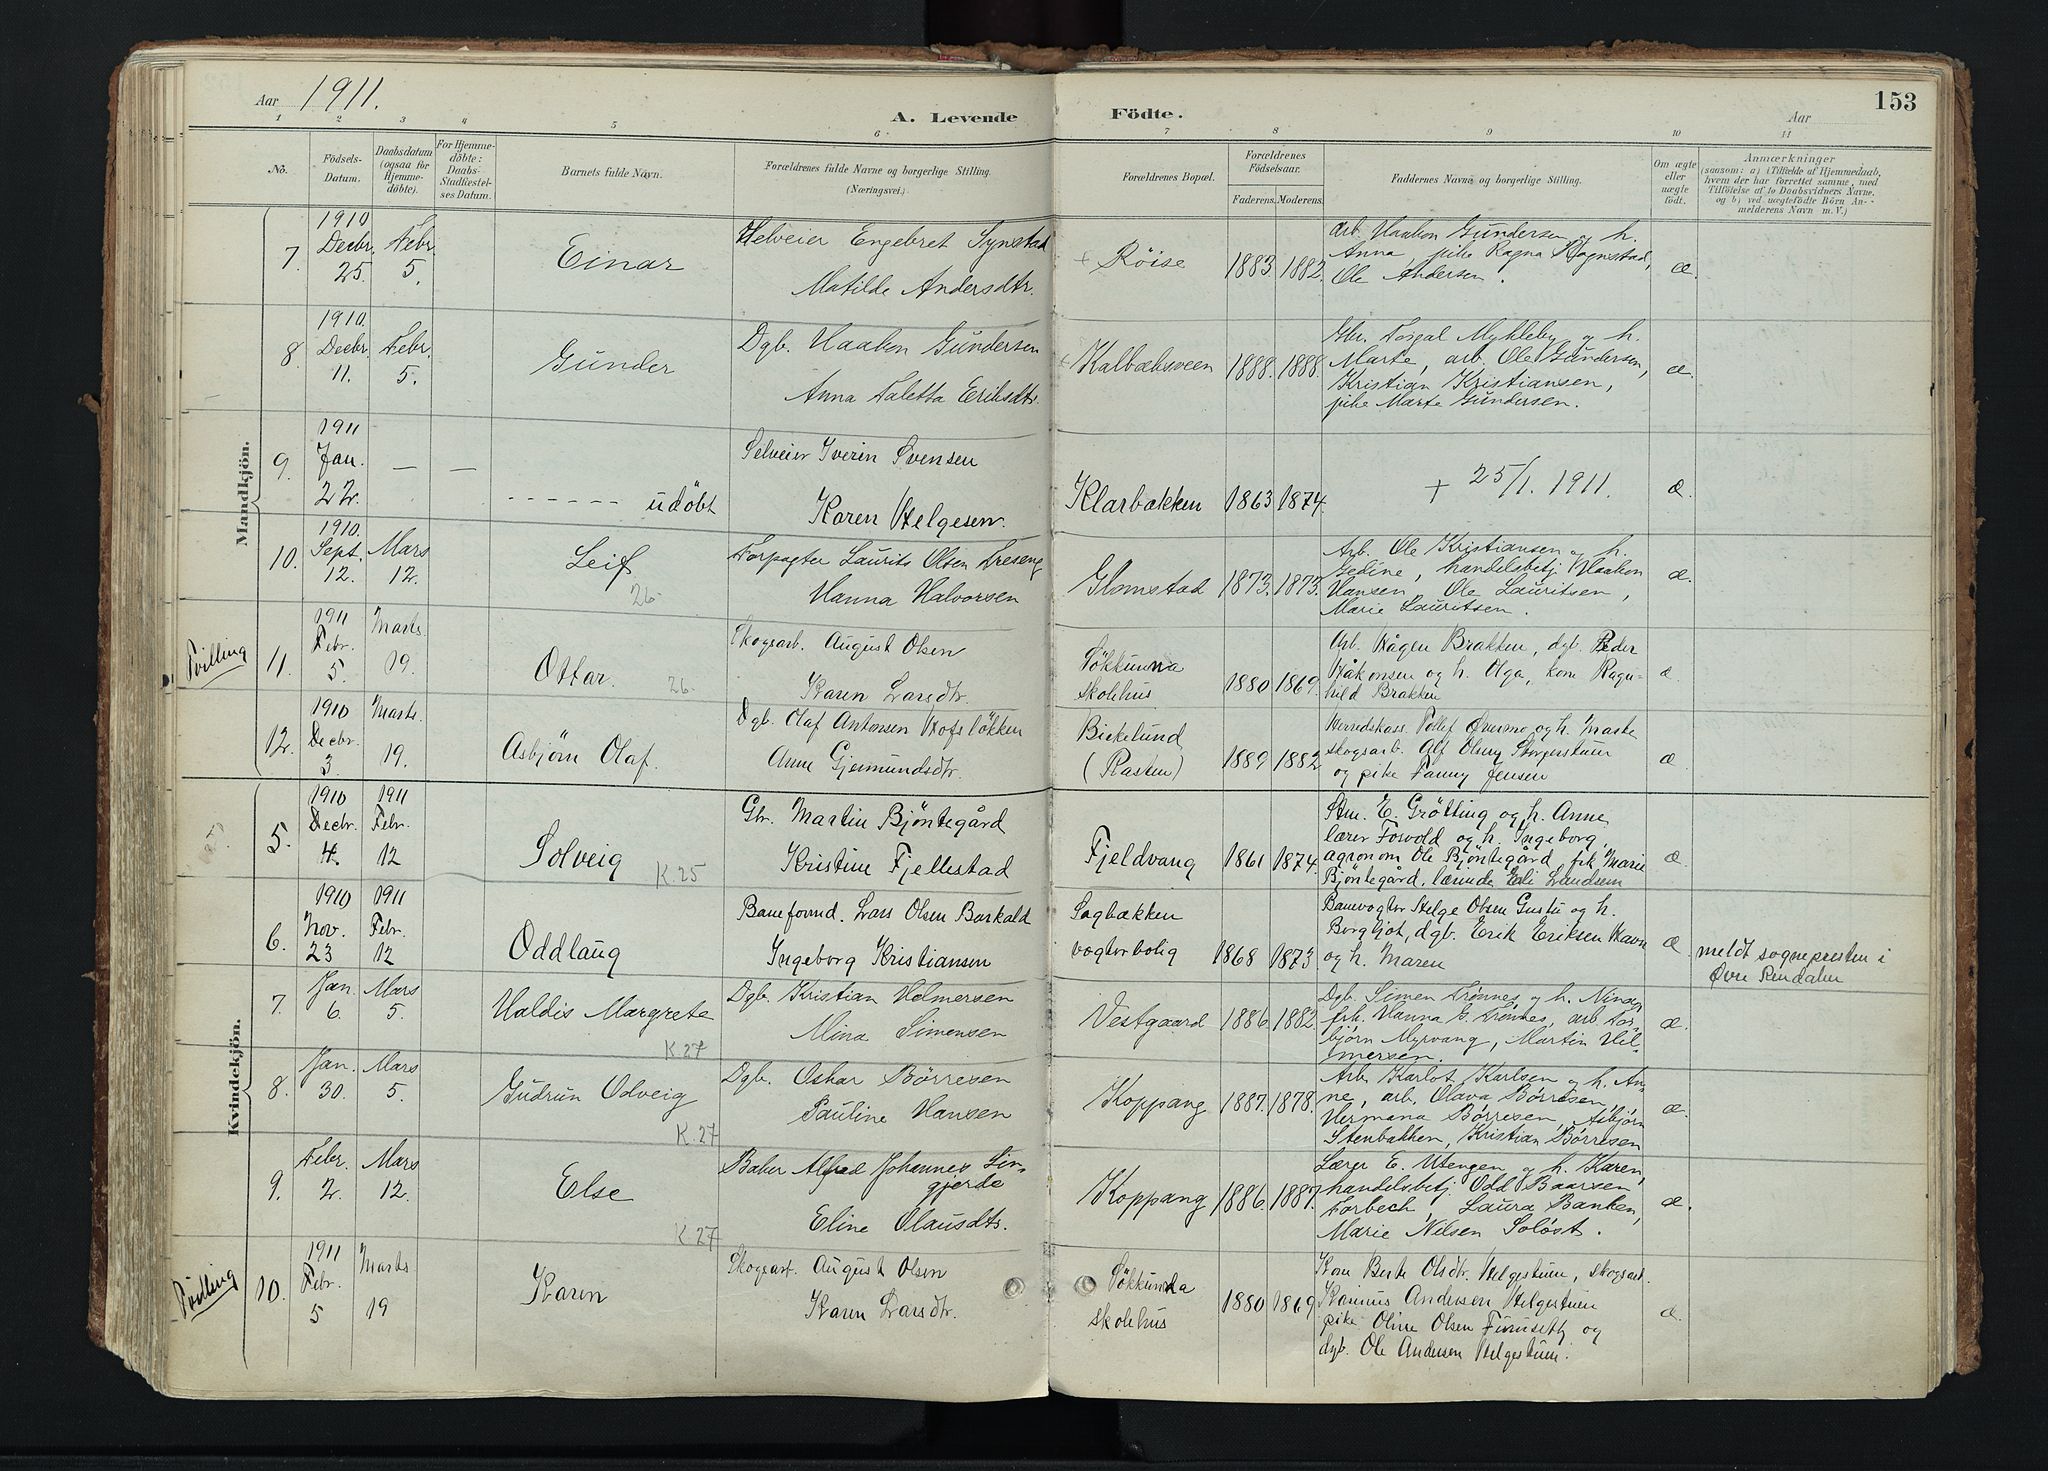 Aar 1911.
A. Levende Födte.
Aar
153
1 2 3 4 5 6 7 8 9 10 11
No.
Födsels-Datum.
Daabsdatum (ogsaa for Hjemmedöbte).
For Hjemmedöbte: Daabs-Stadfæstelses Datum.
Barnets fulde Navn.
Forældrenes fulde Navne og borgerlige Stilling. (Næringsvei).
Forældrenes Bopæl.
Forældrenes Födselsaar.
Faderens. Moderens.
Faddernes Navne og borgerlige Stilling.
Om ægte eller uægte födt.
Anmærkninger
(saasom: a) i Tilfælde af Hjemmedaab, hvem der har forrettet samme, med Tilföielse af to Daabsvidners Navne, og b) ved uægtefödte Börn Anmelderens Navn m. V.)
Mandkjön.
7. 1910 Decbr. 25. Febr. 5.
Einar
Selveier Engebret Synstad
Matilde Andersdtr.
+ Röise
1883. 1882.
Arb. Haakon Gundersen og h.
Anna, pike Ragna Rognstad,
Ole Andersen.
æ.
8. 1910. Decbr. 11. Febr. 5.
Gunder
Dgb. Haakon Gundersen
Anna Valetta Eriksdtr.
Kalbæksveen
1888. 1888.
Gbr. Torgal Mykleby og h.
Marte, arb. Ole Gundersen,
Kristian Kristiansen,
pike Marte Gundersen.
æ.
9. 1911 Jan. 22. — —
------ udöbt
Selveier Iverin Svensen
Karen Helgesen.
Klarbakken
1863 1874.
+ 25/1. 1911.
æ.
10. 1910. Sept. 12. Mars 12.
Leif
26.
Forpagter Laurits Olsen Treseng
Hanna Halvorsen
Glomstad
1873. 1873.
Arb. Ole Kristiansen og h.
Gedine, handelsbetj. Haakon
Hansen Ole Lauritsen,
Marie Lauritsen.
æ.
Tvilling
11. 1911 Febr. 5. Marts. 19.
Ottar.
26.
Skogsarb. August Olsen
Karen Larsdtr.
Søkkunna
skolehus
1880 1869.
Arb. Hågen Brakken, dgb. Peder
Håkonsen og h. Olga, kone Ragn-
hild Brakken
æ.
12. 1910 Decbr. 3. Marts. 19.
Asbjörn Olaf.
Dgb. Olaf Antonsen Hofsløkken
Anne Gjermundsdtr.
Birkelund
(Rasten)
1889 1882
Herredskass. Tollef Øvermo og h. Marte
skogsarb. Alf Olsen Storgerstuen
og pike Fanny Jensen
æ.
Kvindekjön.
5. 1910 Decbr. 4. 1911 Febr. 12
Solveig
K. 25
Gbr. Martin Bjöntegård
Kristine Fjellestad
Fjeldvang
1861 1874.
Stm. E. Grötting og h. Anne,
lærer Fosvold og h. Ingeborg,
agronom Ole Bjöntegård frk Marie
Bjöntegård, lærinde Eli Landsem
æ.
6. 1910 Nov. 23 1911 Febr. 12
Oddlaug
Baneformd. Lars Olsen Barkald
Ingeborg Kristiansen
Sagbækken
vogterbolig
1868 1873
Banevogter Helge Olsen Gustu og h.
Borgljot, dgb. Erik Eriksen Havn
og h. Maren
æ.
meldt sognepresten i
Øvre Rendalen
7. Jan. 6. Mars 5.
Haldis Margrete
K. 27
Dgb. Kristian Holmersen
Mina Simensen
Vestgaard
1886. 1882.
Dgb. Simen Trønnes og h. Nina,
frk. Hanna S. Trønnes, arb. Tor-
björn Myrvang, Martin Hil-
mersen.
æ.
8. Jan. 30. Mars 5.
Gudrun Odveig
K. 27
Dgb. Oskar Børresen
Pauline Hansen
Koppang
1887. 1878.
Arb. Karlot Karlsen og h. An-
ne, arb. Olava Børresen,
Hermana Børresen, Asbjørn
Stenbakken, Kristian Børresen
æ.
9. Febr. 2. Mars 12.
Else
K. 27
Baker Alfred Johannes Lin-
gjerde
Eline Olausdtr.
Koppang
1886. 1887.
Lærer E. Utengen og h. Karen,
handelsbetj. Odd Baarsen
Torbech, Laura Banken,
Marie Nilsen Soløst.
æ.
Tvilling
10. 1911 Febr. 5 Marts 19
Karen
Skogsarb. August Olsen
Karen Larsdtr.
Søkkunda
skolehus
1880 1869
Kone Berte Olsdtr. Helgestuen, skogsarb.
Rasmus Andersen Helgestuen
pike Oline Olsen Furuseth og
dgb. Ole Andersen Helgestuen.
æ.